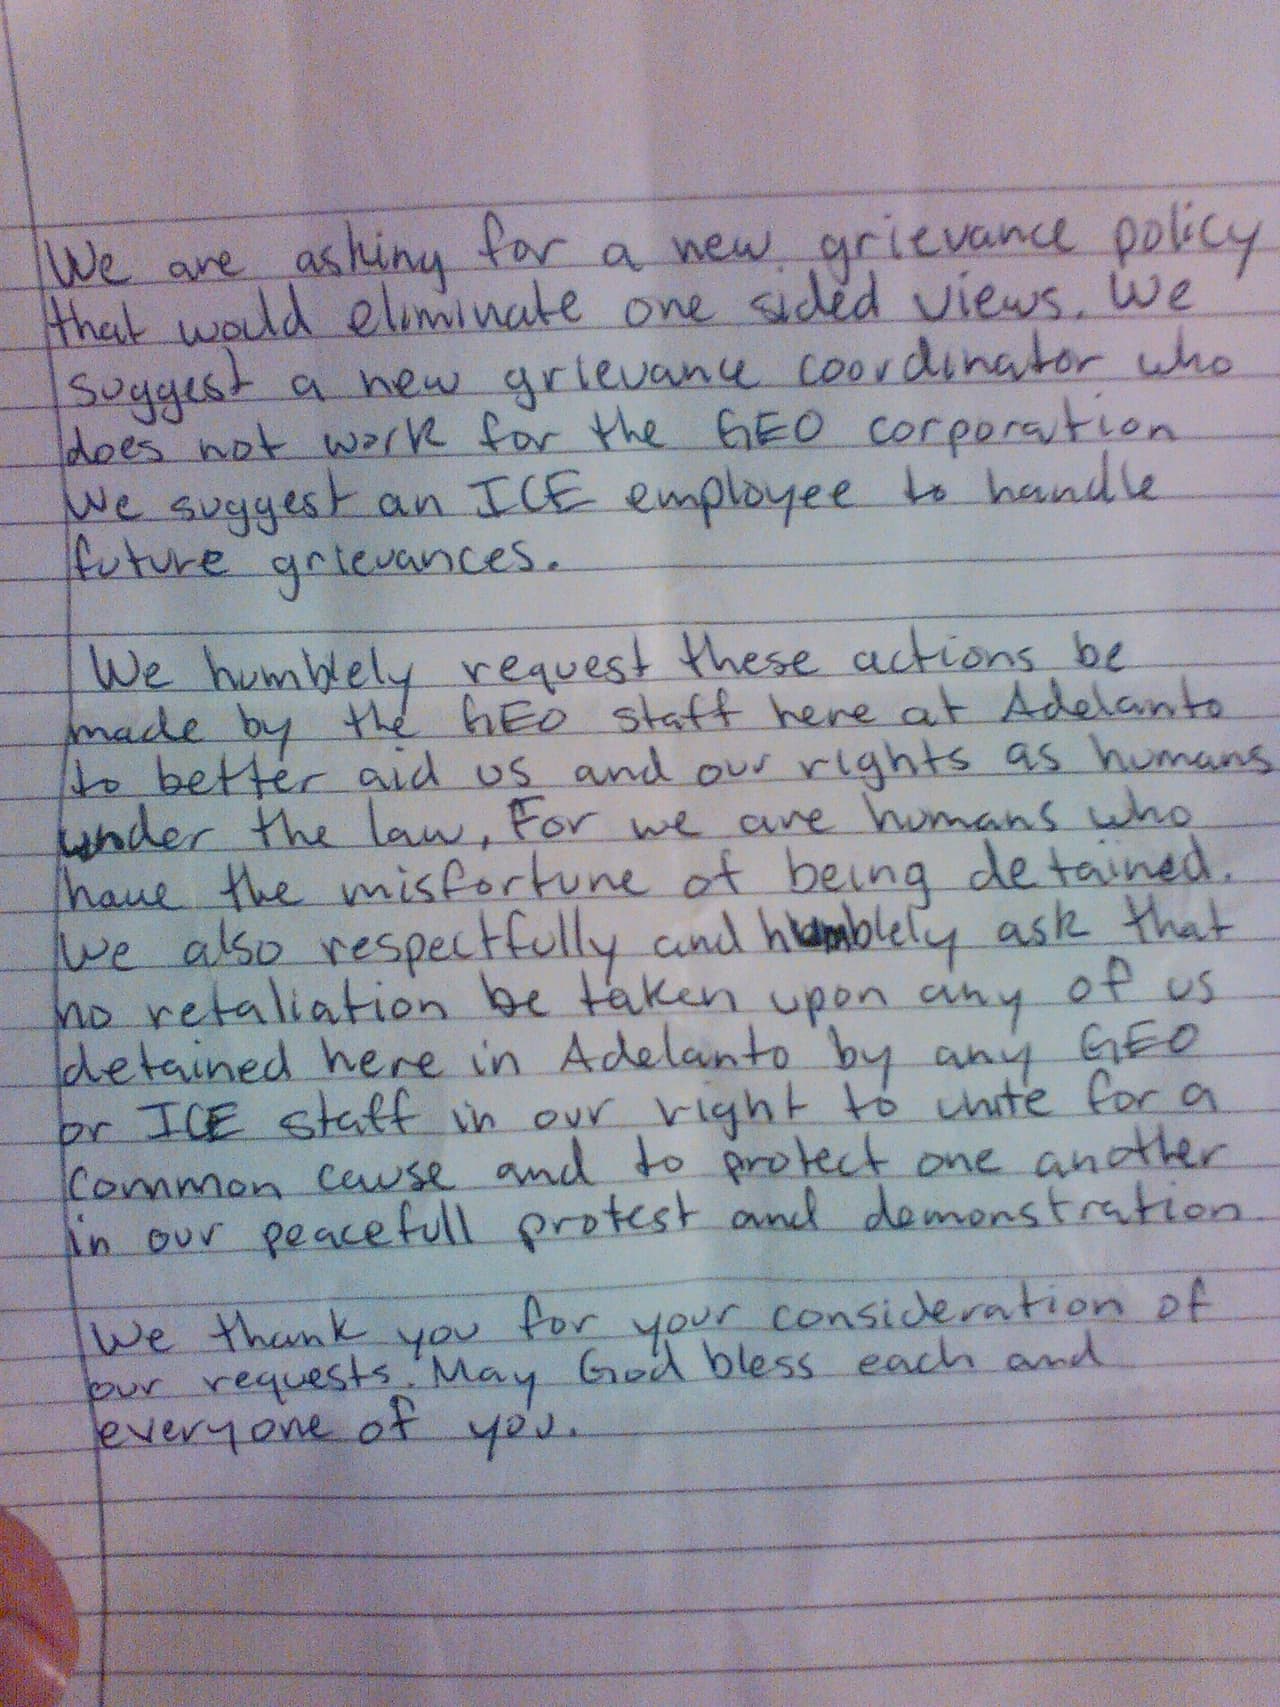 We are asking for a new grievance policy
that would eliminate one sided views. We
suggest a new grievance coordinator who
does not work for the GEO corporation
We suggest an ICE employee to handle
future grievances.
We humblely request these actions be
made by the GEO staff here at Adelanto
to better aid us and our rights as humans
under the law, For we are humans who
have the misfortune of being detained.
We also respectfully and humblely ask that
no retaliation be taken upon any of us
detained here in Adelanto by any GEO
or ICE staff in our right to unite for a
common cause and to protect one another
in our peacefull protest and demonstration
We thank you for your consideration of
our requests. May God bless each and
everyone of you.